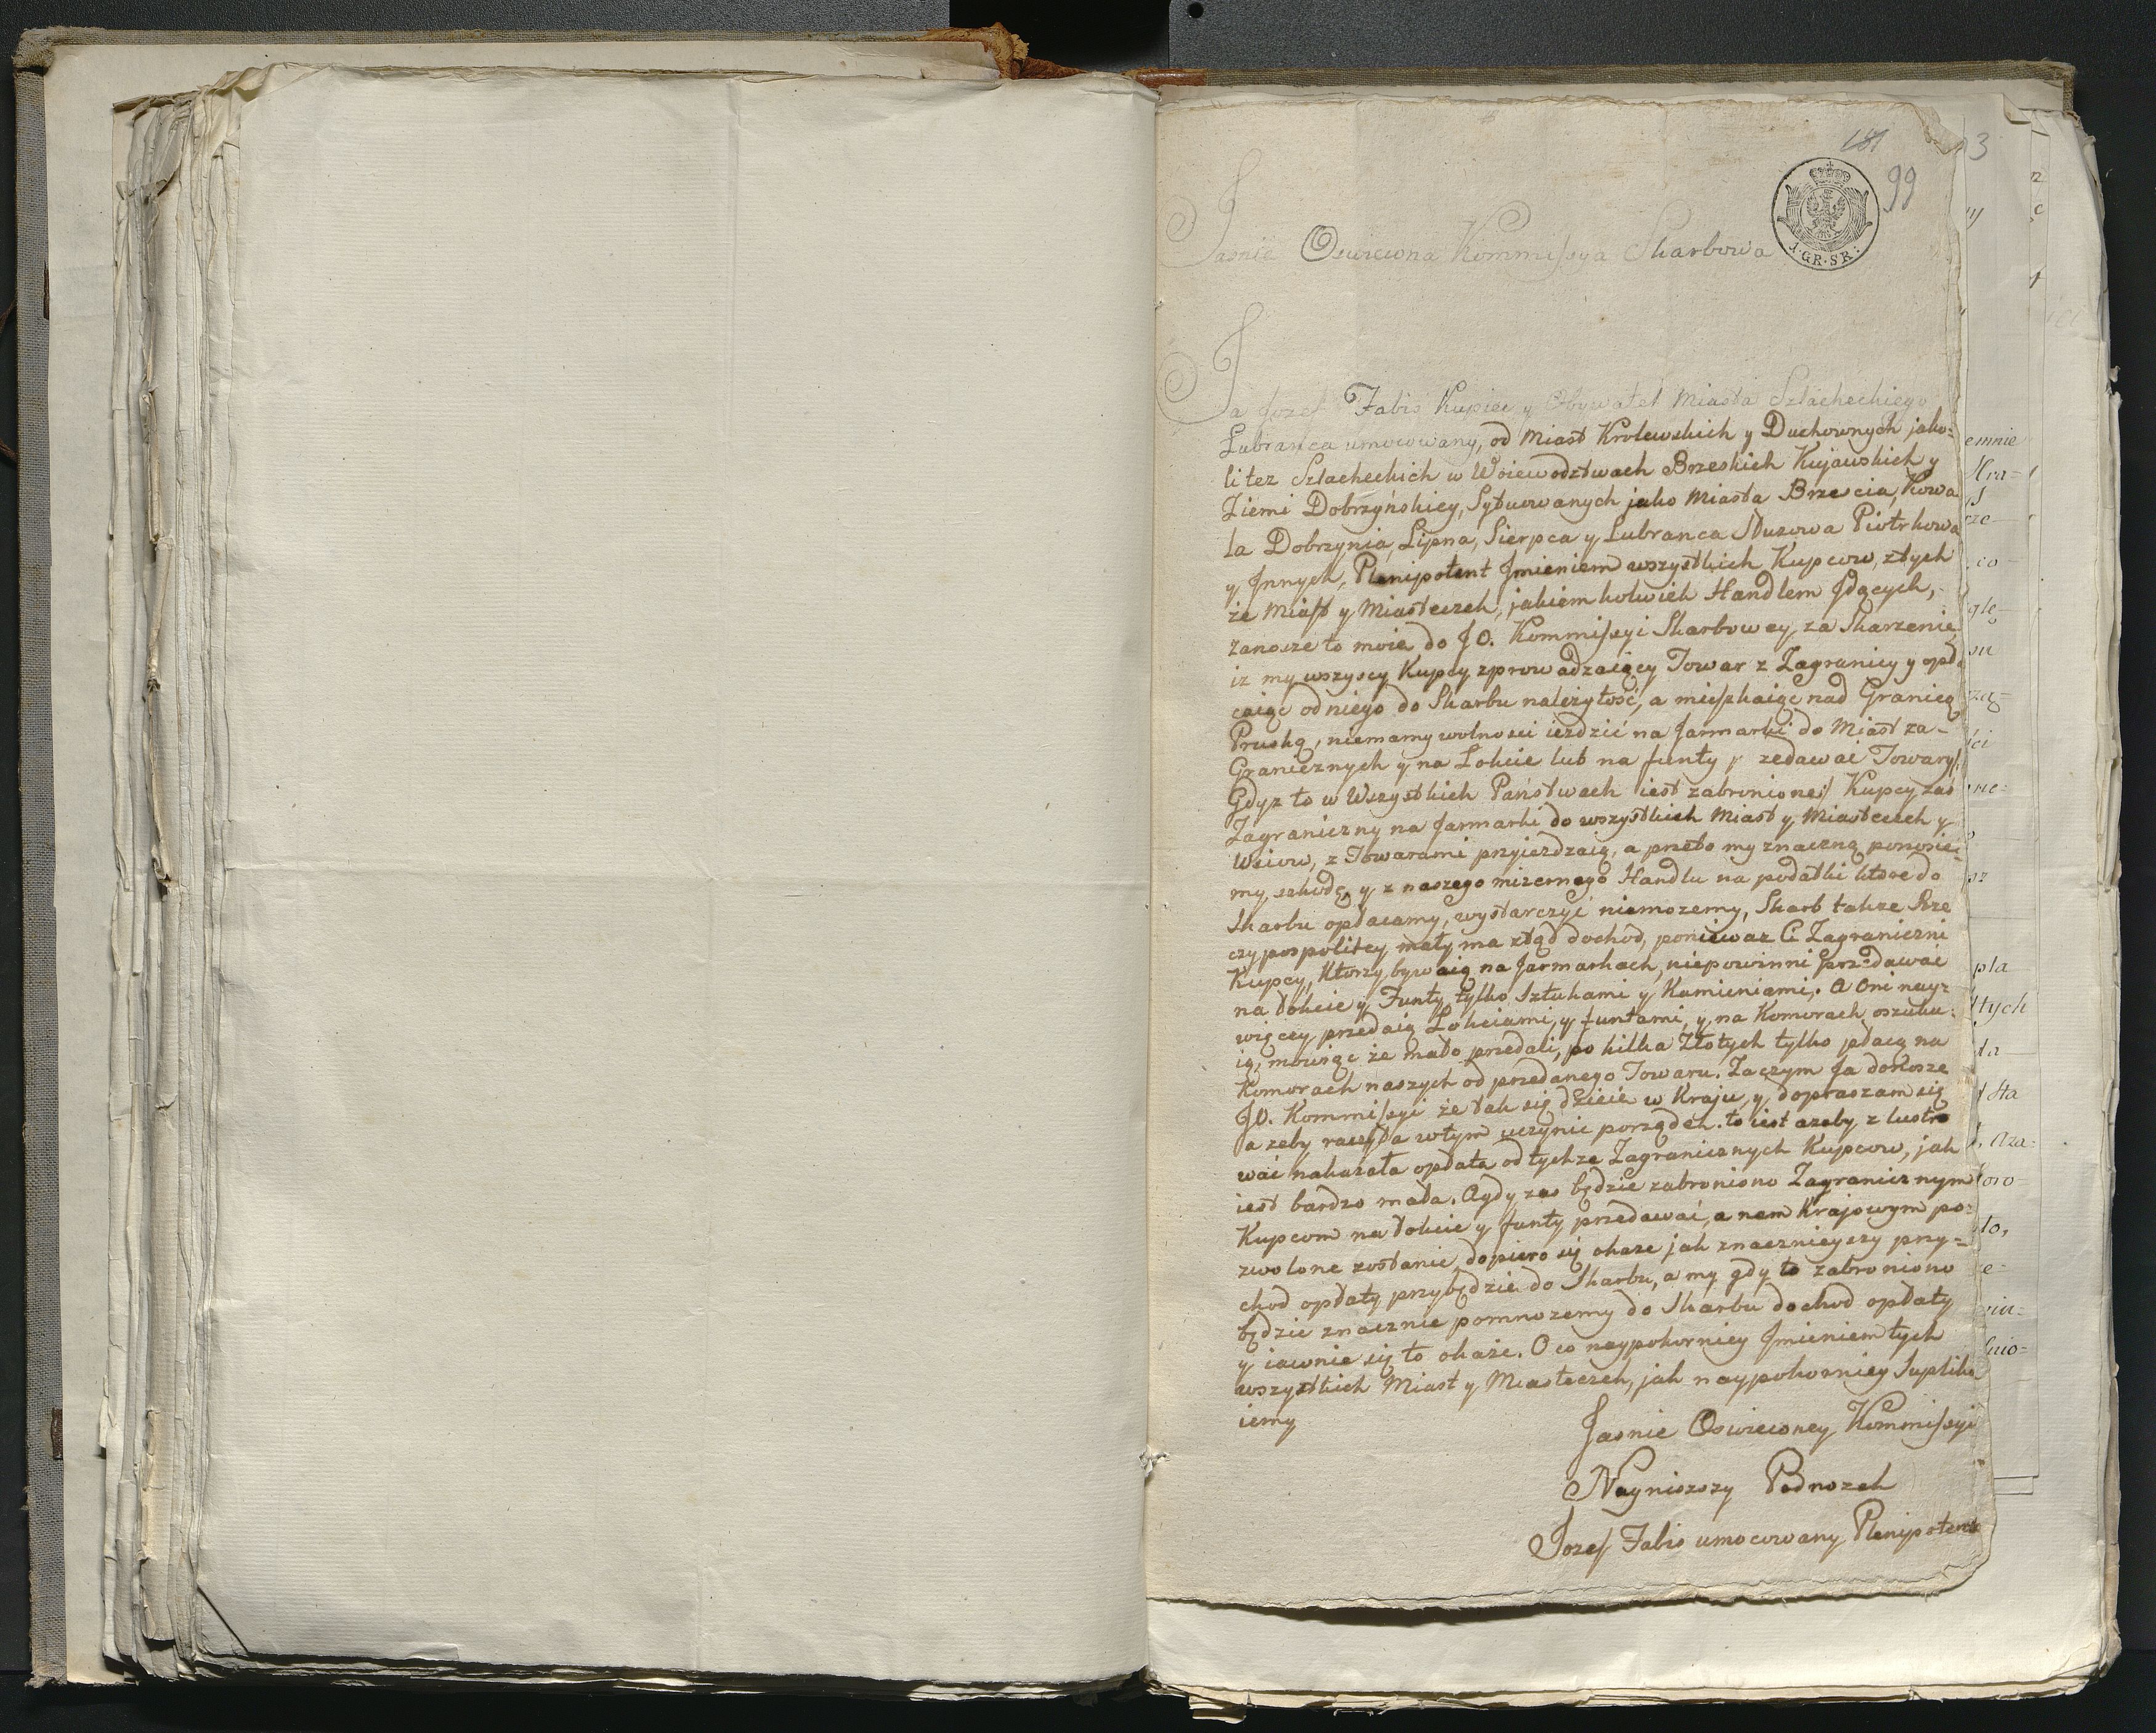 181
3
99
1·GR·SR:
Jasnie Oswiecona Kommissya Skarbowa
Ja Jozef Fabis Kupiec y Obywatel Miasta Szlacheckiego
Lubranca umocowany, od Miast Krolewskich y Duchownych jako=
li tez Szlacheckich w Woiewodztwach Brzeskich Kujawskich y
Ziemi Dobrzyńskiey, Sytuowanych jako Miasta Brzescia, Kowa
la Dobrzynia, Lipna, Sierpca y Lubranca Służowa Piotrkowa
y Jnnych, Plenipotent Jmieniem wszystkich Kupcow, z tych
że Miast y Miasteczek, jakiem kolwiek Handlem Jdących,
zanosze to moie do JO. Kommissyi Skarbowey, za Skarzenie,
iz my wszyscy Kupcy zprowadzaiący Towar z Zagranicy y opła
caiąc od niego do Skarbu należytość, a mieszkaiąc nad Granicą
Pruską, niemamy wolnosci iezdzić na Jarmarki do Miast za-
Granicznych y na Łokcie lub na funty przedawać Towary/:
Gdyz to w Wszystkich Państwach iest zabronione:/ Kupcy zas
Zagraniczny na Jarmarki do wszystkich Miast y Miasteczek y
Wsiow, z Towarami przyiezdzaią, a przeto my znaczną ponosie=
my szkodę, y z naszego mizernego Handlu na podatki ktore do
Skarbu opłacamy, wystarczyć niemozemy, Skarb takze Rze
czypospolitey mały ma ztąd dochod, poniewaz Ci Zagraniczni
Kupcy, Ktorzy bywaią na Jarmarkach, niepowinni przedawać
na Łokcie y Funty tylko Sztukami y Kamieniami. A Oni nay=
więcey przedaią Łokciami, y funtami, y na Komorach oszuku=
ią, mowiąc że mało przedali, po kilka Złotych tylko płacą na
Komorach naszych od przedanego Towaru. Zaczym Ja donosze
JO. Kommissyi że tak się dzieie w Kraju, y dopraszam się
a zeby raczyła wtym uczynic porządek. to iest azeby z lustro
wać nakazała opłata od tychze Zagranicznych Kupcow, jak
iest bardzo mała. A gdy zas będzie zabroniono Zagranicznym
Kupcom na Łokcie y funty przedawać, a nam Krajowym po=
zwolone zostanie, dopiero się okaze jak znacznieyszy przy=
chod opłaty przybędzie do Skarbu, a my gdy to zabroniono
będzie znacznie pomnozemy do Skarbu dochod opłaty
y iawnie się to okaże. O co naypokorniey Jmieniem tych
wszystkich Miast y Miasteczek, jak naypokorniey Supliku
iemy
Jasnie Oswieconey Kommissyi
Nayniszszy Podnozek
Jozef Fabis umocowany Plenipotent